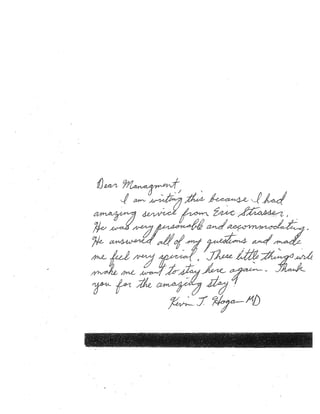 Dear Managment,
I am writing this because I had
amazing service from Eric Strasser.
He was very personable and accommodating.
He answered all of my questions and made
me feel very special. These little things will
make me want to stay here again. Thank
you for the amazing stay!
Kevin T. Hogan MD